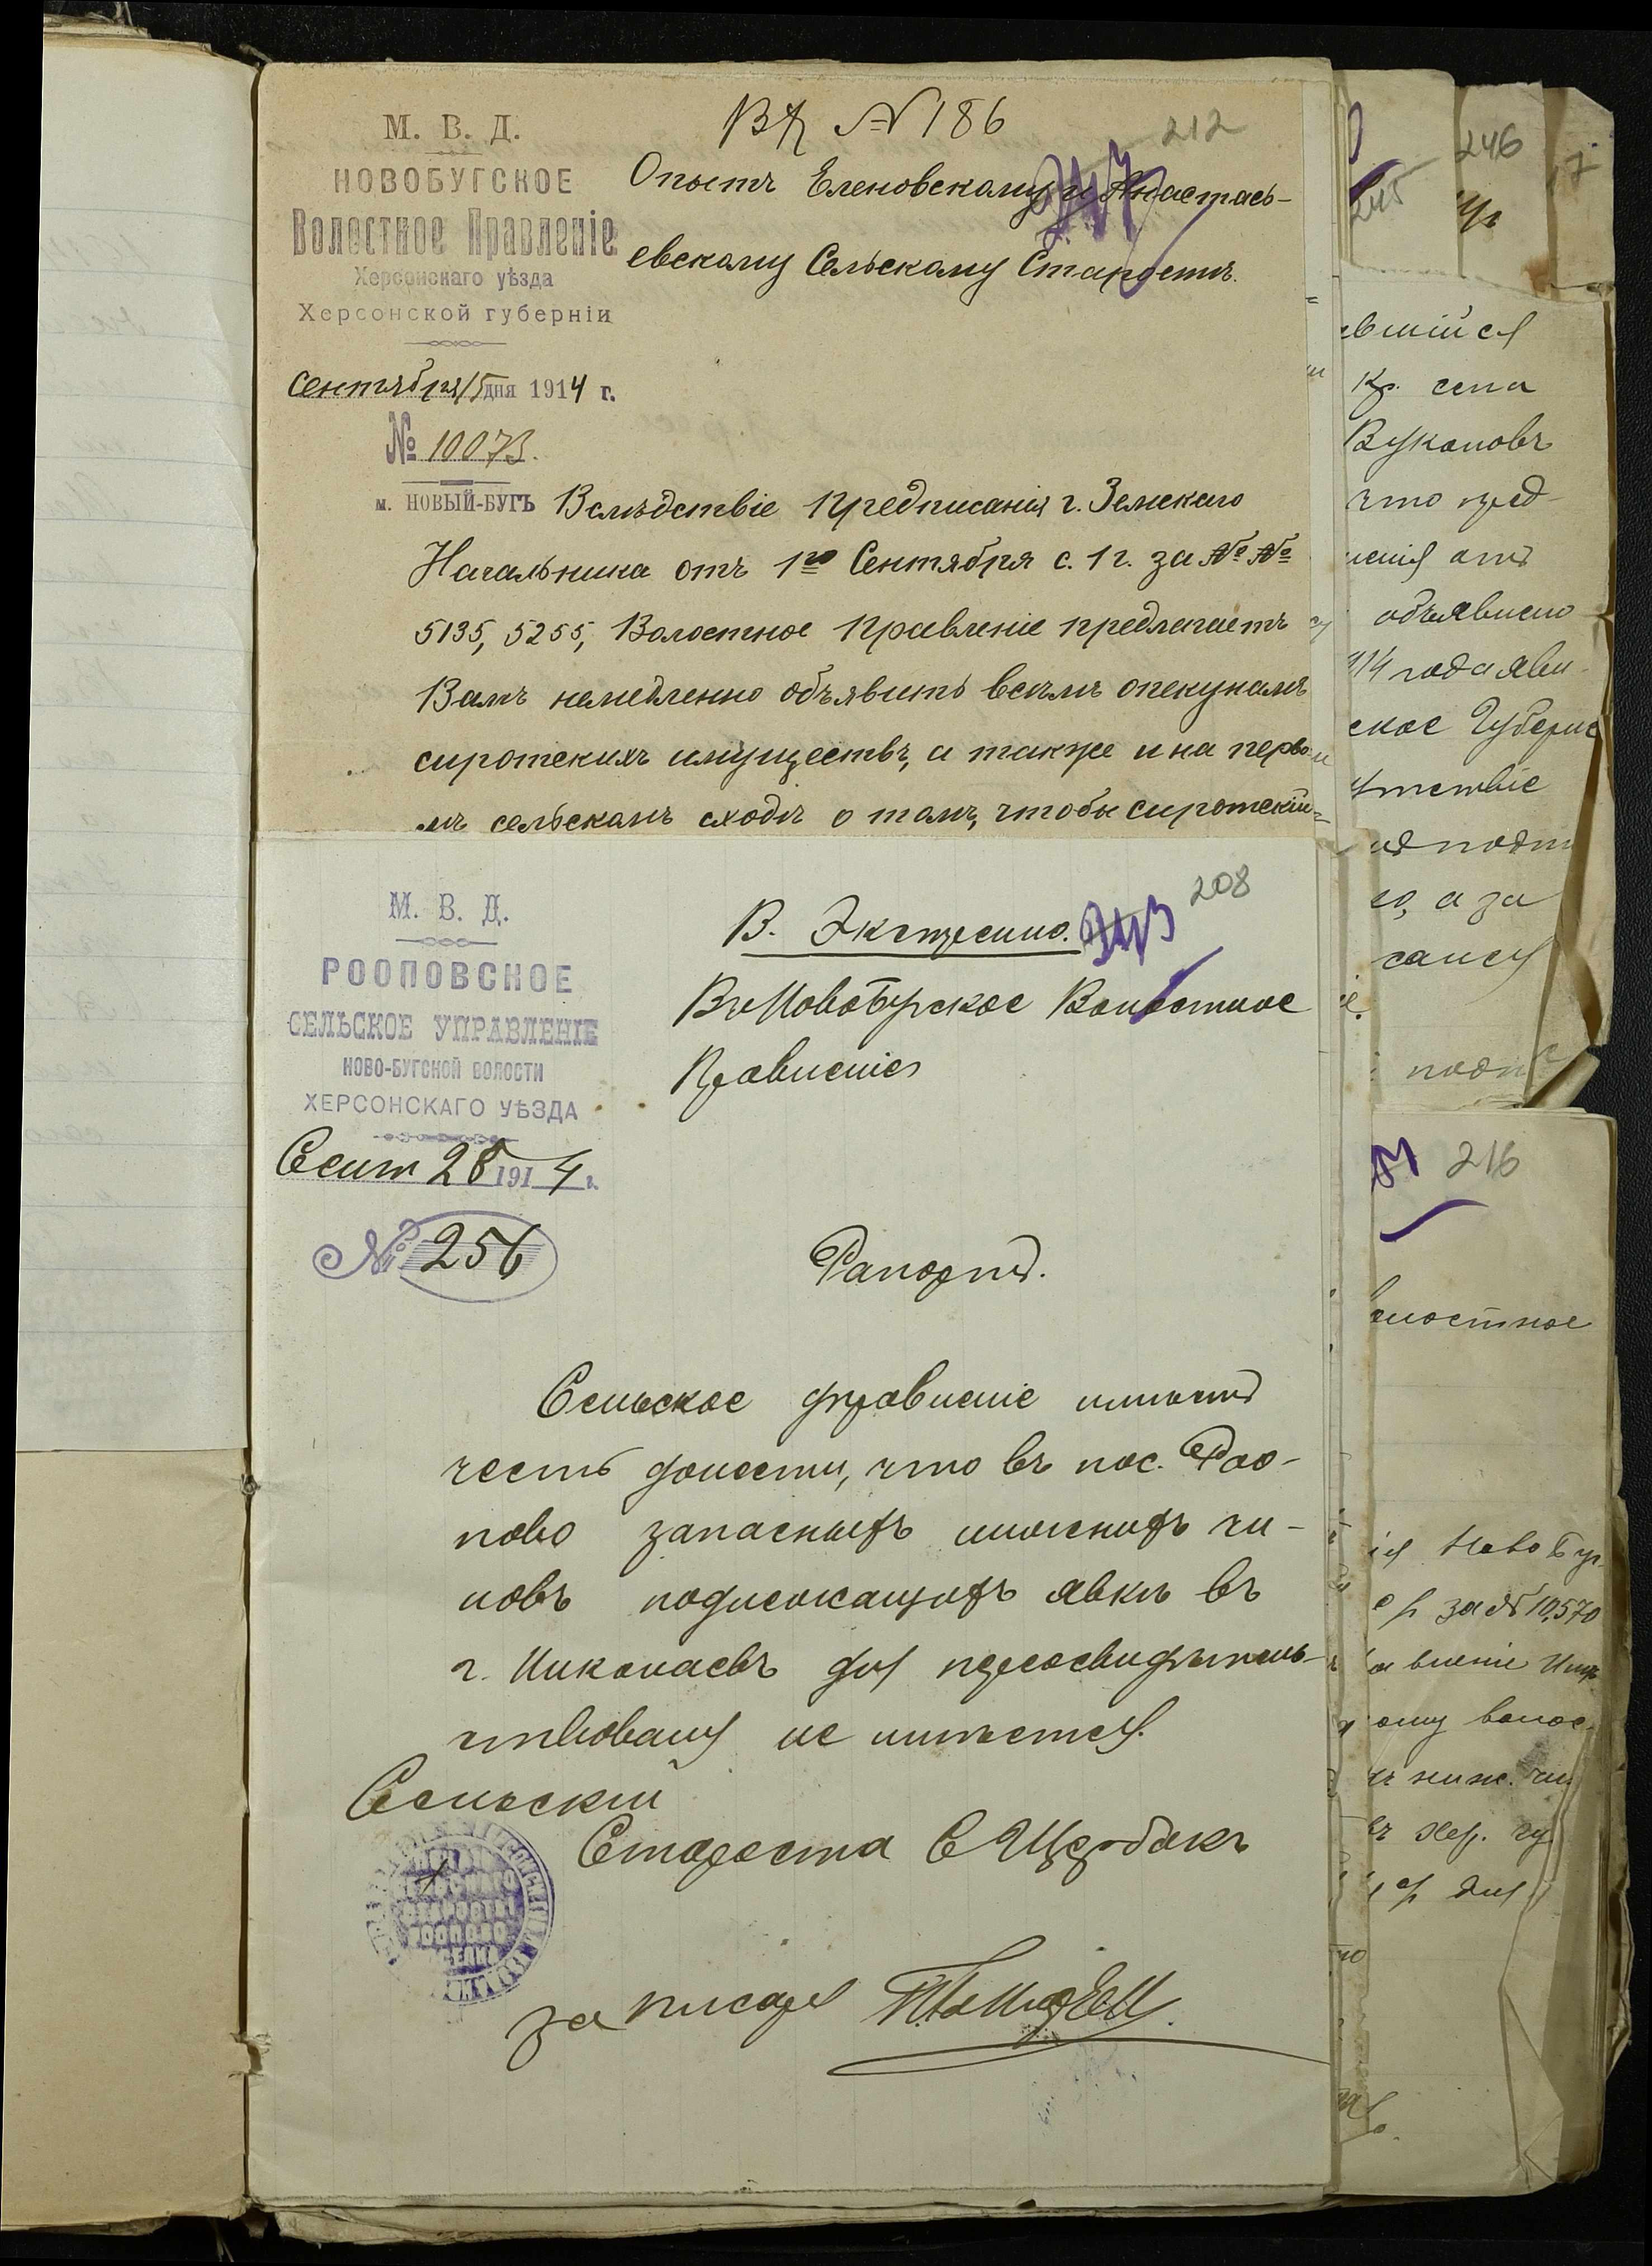 ВД № 186
212
М. В. Д.
НОВОБУГСКОЕ
Волостное Правленіе
Херсонскаго уѣзда
Херсонской губерніи
Сентября 15 дня 1914 г.
№ 10073.
м. НОВЫЙ-БУГЪ
Еленовскому и Анастась-
евскому Сельскому Старостѣ.
Вслѣдствіе предписанія г. Земскаго
Начальника отъ 1го Сентября с. г. за №№
5135, 5255, Волостное Правленіе предлагаетъ
Вамъ немедленно объявить всѣмъ опекунамъ
сиротскихъ имуществъ, а также и на перво-
мъ сельскомъ сходѣ о томъ, чтобы сиротскі
208
М. В. Д.
РООПОВСКОЕ
СЕЛЬСКОЕ УПРАВЛЕНІЕ
НОВО-БУГСКОЙ ВОЛОСТИ
ХЕРСОНСКАГО УѢЗДА
Сент 28 1914 г.
№ 256
В. Экстренно.
Въ Новобугское Волостное
Правленіе
Рапортъ.
Сельское управленіе имѣетъ
честь донести, что въ пос. Роо-
пово запасныхъ нижнихъ чи-
новъ подлежащихъ явкѣ въ
г. Николаевъ для переосвидѣтель-
ствованія не имѣется.
Сельскій
Староста С Щербакъ
за писаря
246
вшійся
кр. села
Вукановъ
что пред-
ленія отъ
объявлено
914 года яви
ское Губерн
утствіе
а за
216
олостное
ія Новобуг.
за № 10,570
авленіе
ому волос
ъ ниж. чи
ъ Хер. гу
для